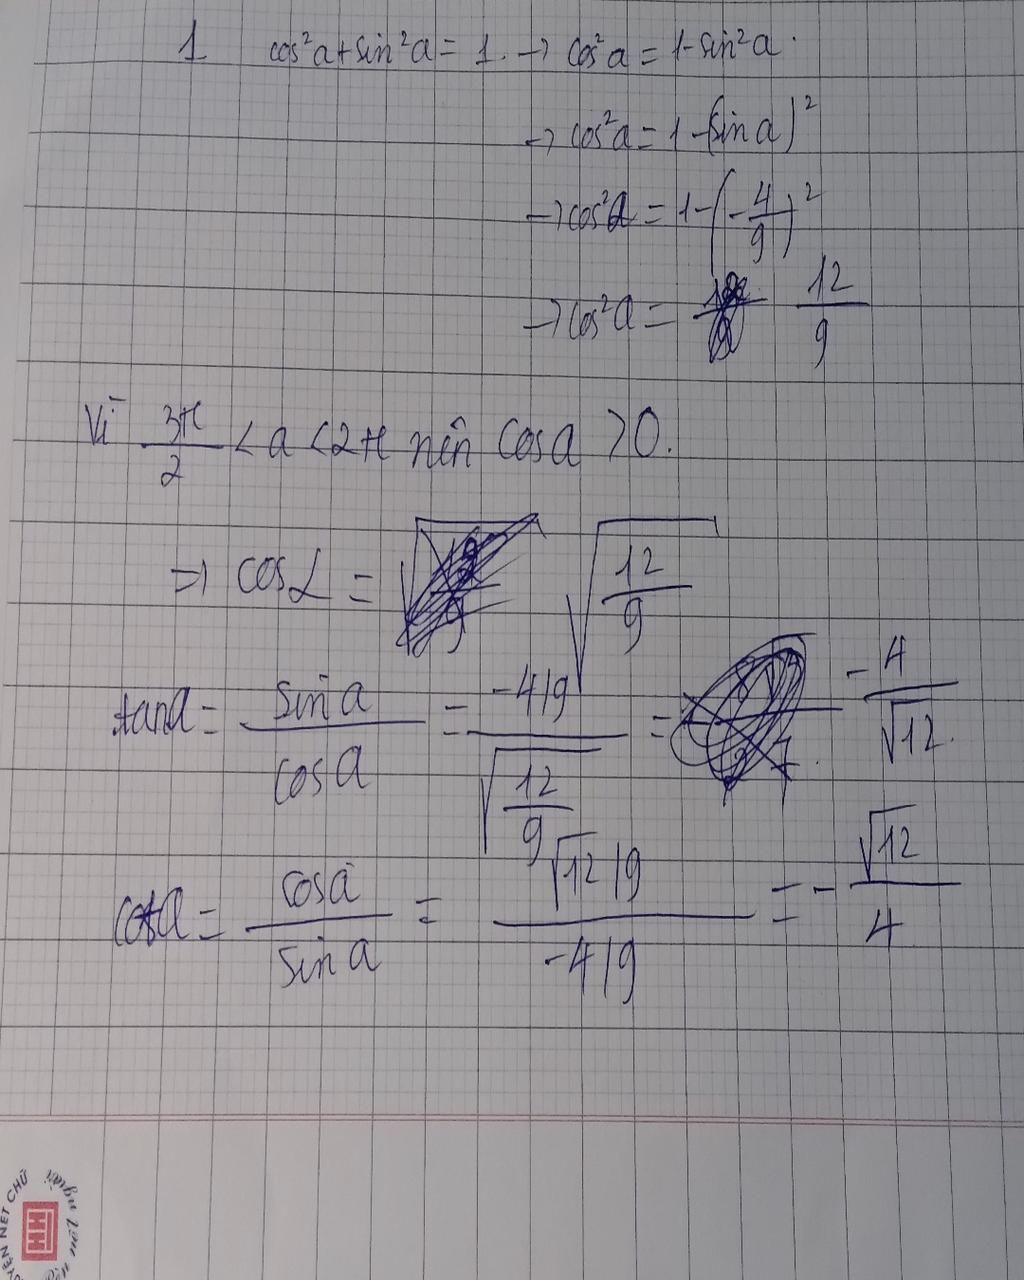 1 cos²a + sin²a = 1. → cos²a = 1 - sin²a.
→ cos²a = 1 - (sin a)²
→ cos²a = 1 - (-4/9)²
→ cos²a = 12/9
Vì 3π/2 < a < 2π nên cos a > 0.
=> cos α = √(12/9)
tan a = sin a/cos a = (-4/9)/√(12/9) = -4/√12.
cot a = cos a/sin a = (√12/9)/(-4/9) = -√12/4
NÉT CHỮ